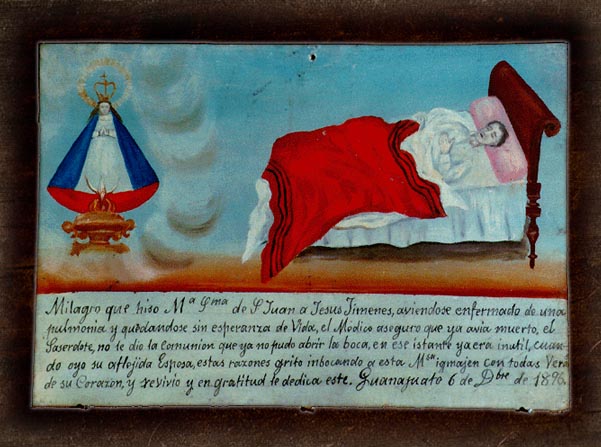 Milagro que hiso Mª Sma de S Juan a Jesus Jimenes, aviendose enfermado de una
pulmonia y quedandose sin esperanza de Vida, el Médico aseguro que ya avia muerto, el
Saserdote, no le dio la comunion que ya no pudo abrir la boca, en ese istante ya era inutil, cuan-
do oyo su aflejida Esposa, estas razones grito inbocando a esta Msa igmajen con todas Veras
de su Corazon, y revivio y en gratitud le dedica este. Guanajuato 6 de Dbre de 1896.